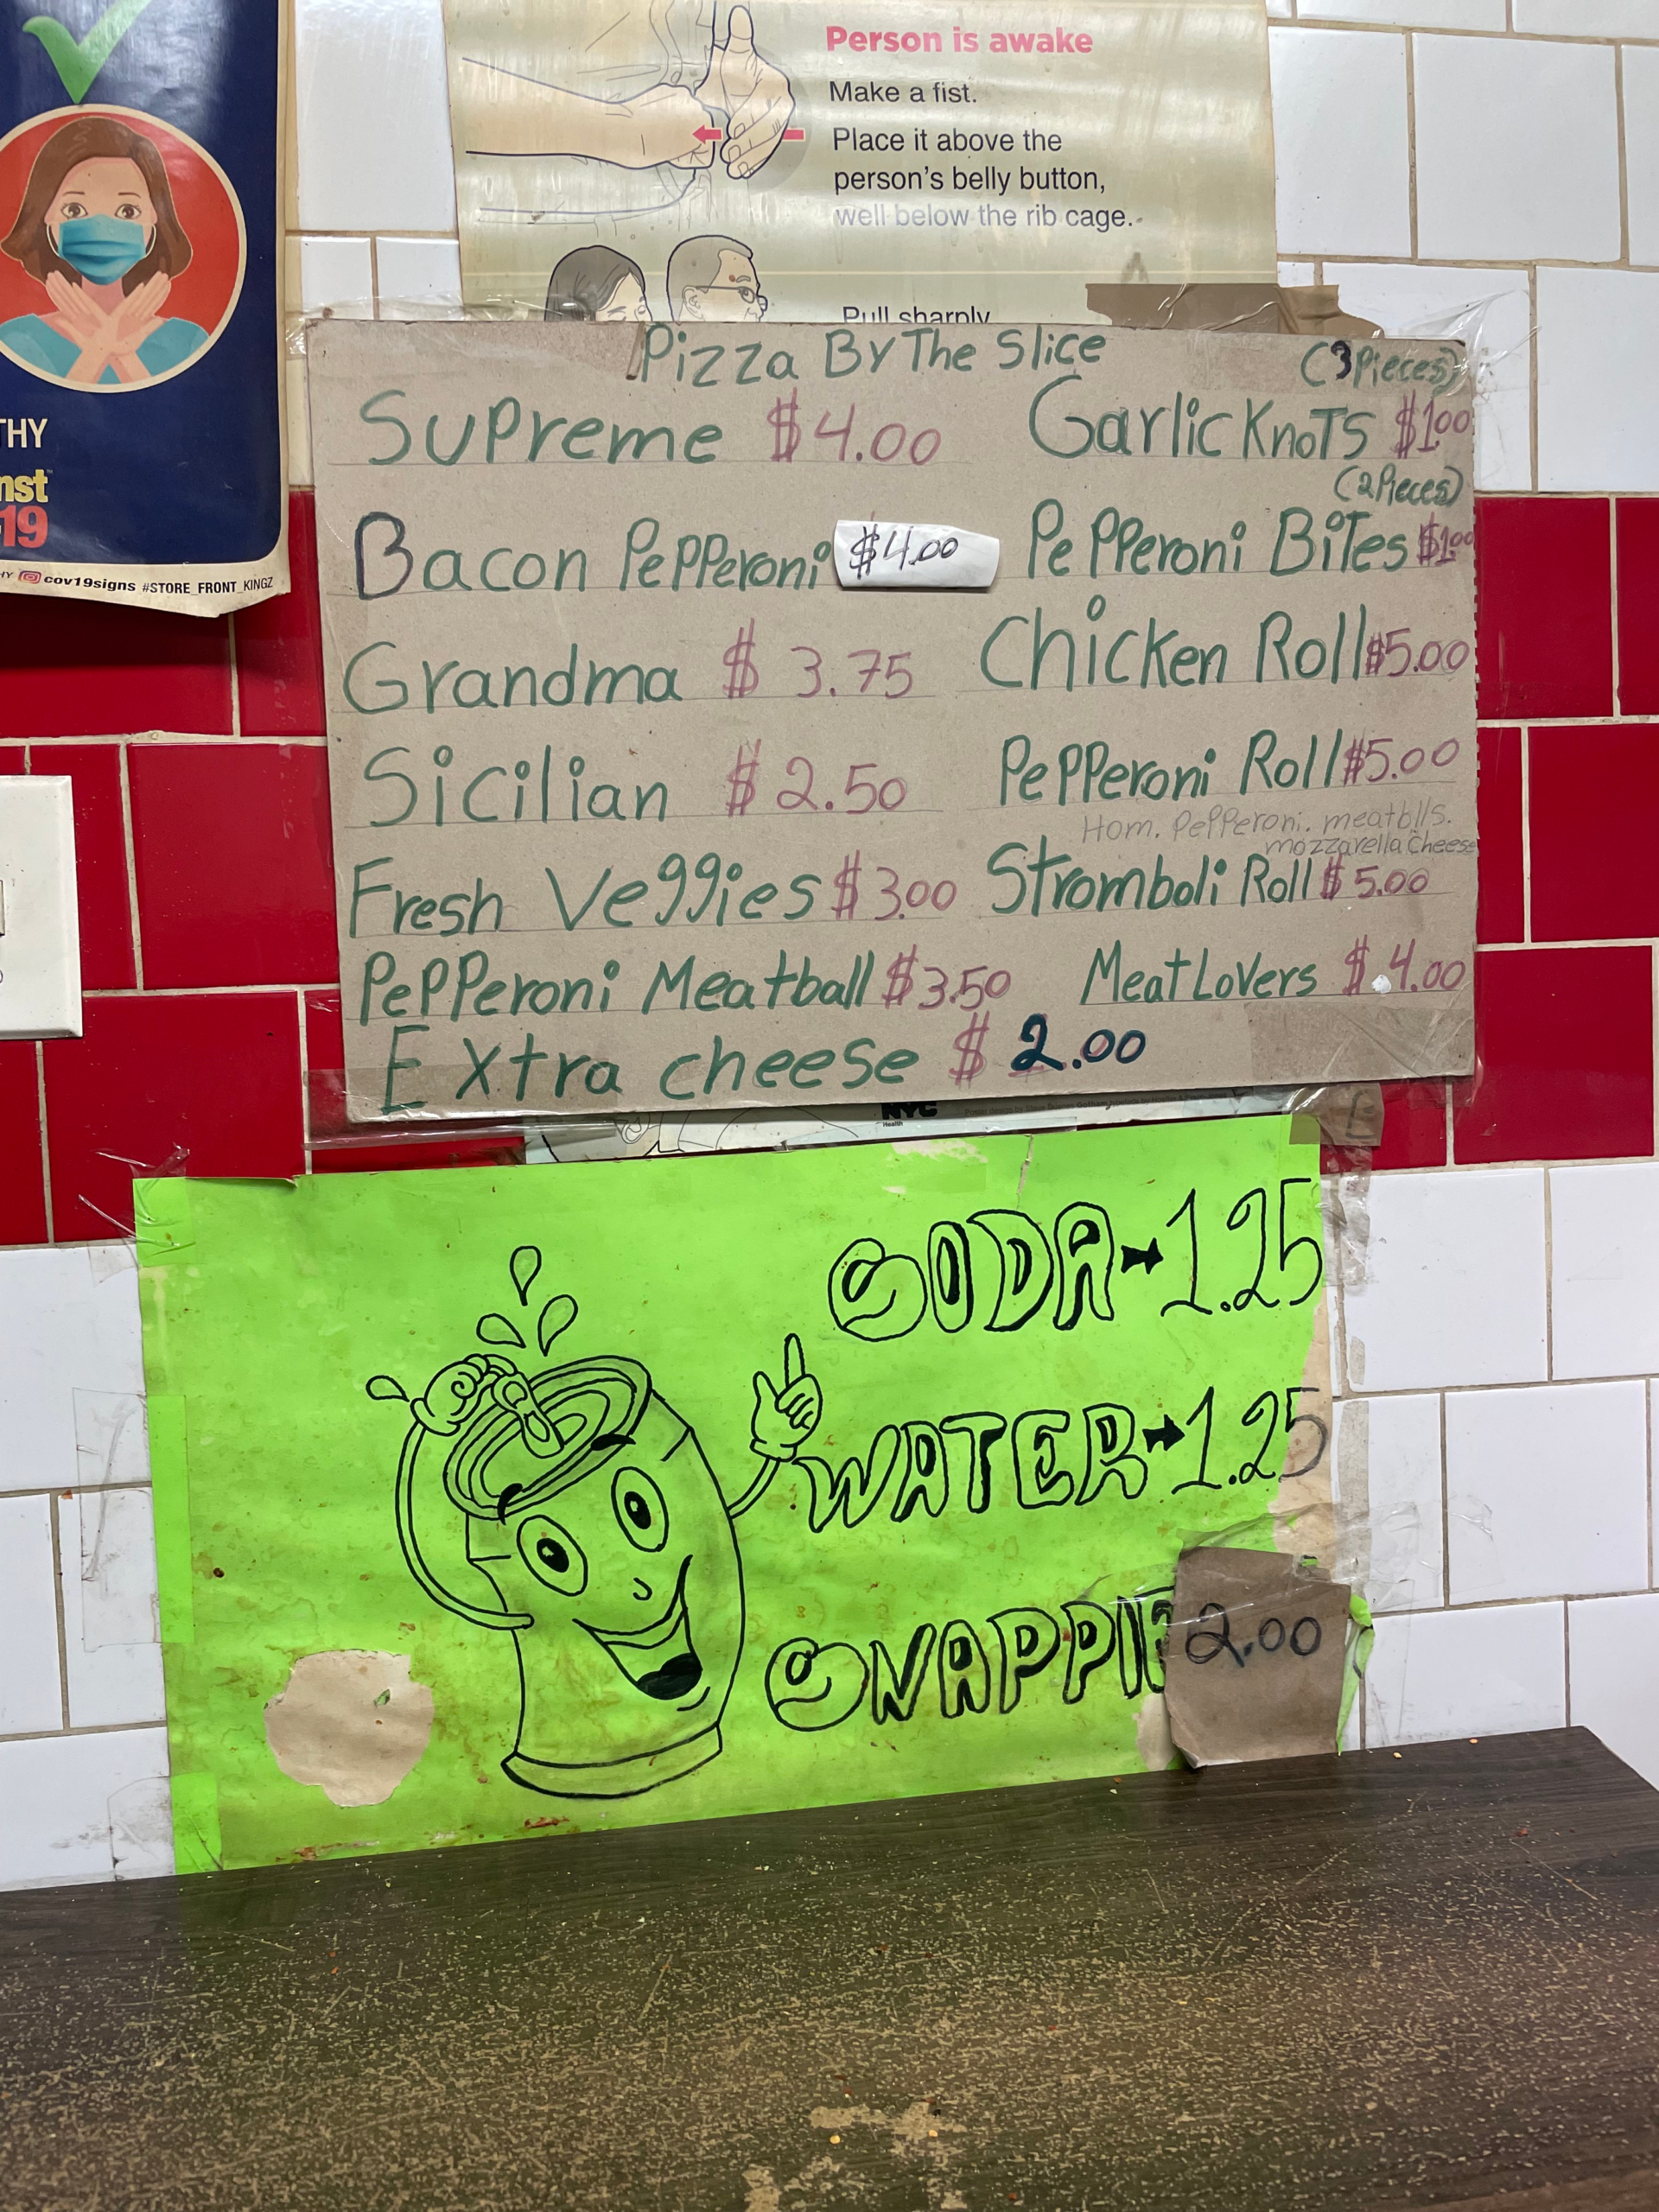 Person is awake
Make a fist.
Place it above the
person's belly button,
well below the rib cage.
Pull sharply
THY
nst
19
cov19signs #STORE_FRONT_KINGZ
Pizza By The Slice
Supreme $4.00
Bacon Pepperoni $4.00
Grandma $3.75
Sicilian $2.50
Fresh Veggies $3.00
Pepperoni Meatball $3.50
Extra cheese $2.00
(3 Pieces)
Garlic Knots $1.00
(2 Pieces)
Pepperoni Bites $1.00
Chicken Roll $5.00
Pepperoni Roll $5.00
Hom. Pepperoni. meatblls.
mozzarella Cheese
Stromboli Roll $5.00
Meat Lovers $4.00
NYC
Health
SODA→1.25
WATER→1.25
SNAPPLE 2.00